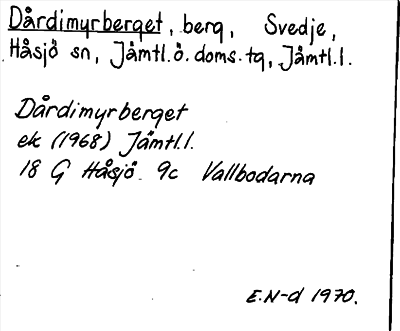 Dårdimyrberget, berg, Svedje,
Håsjö sn, Jämtl.ö.doms.tg, Jämtl.l.
Dårdimyrberget
ek (1968) Jämtl.l.
18 G Håsjö 9c Vallbodarna
E.N-d 1970.